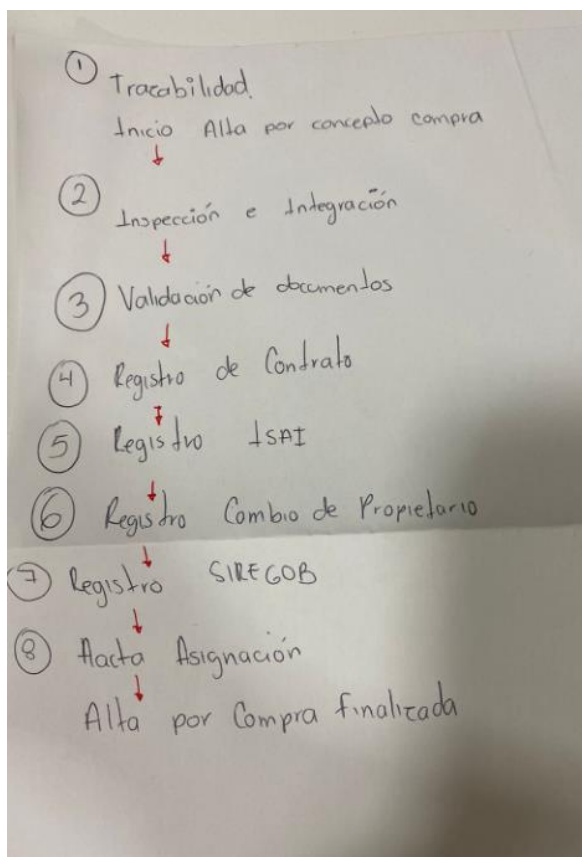 ① Tracabilidad.
Inicio Alta por concepto compra
② Inspección e Integración
③ Validación de documentos
④ Registro de Contrato
⑤ Registro ISAI
⑥ Registro Cambio de Propietario
⑦ Registro SIREGOB
⑧ Aacta Asignación
Alta por Compra finalizada